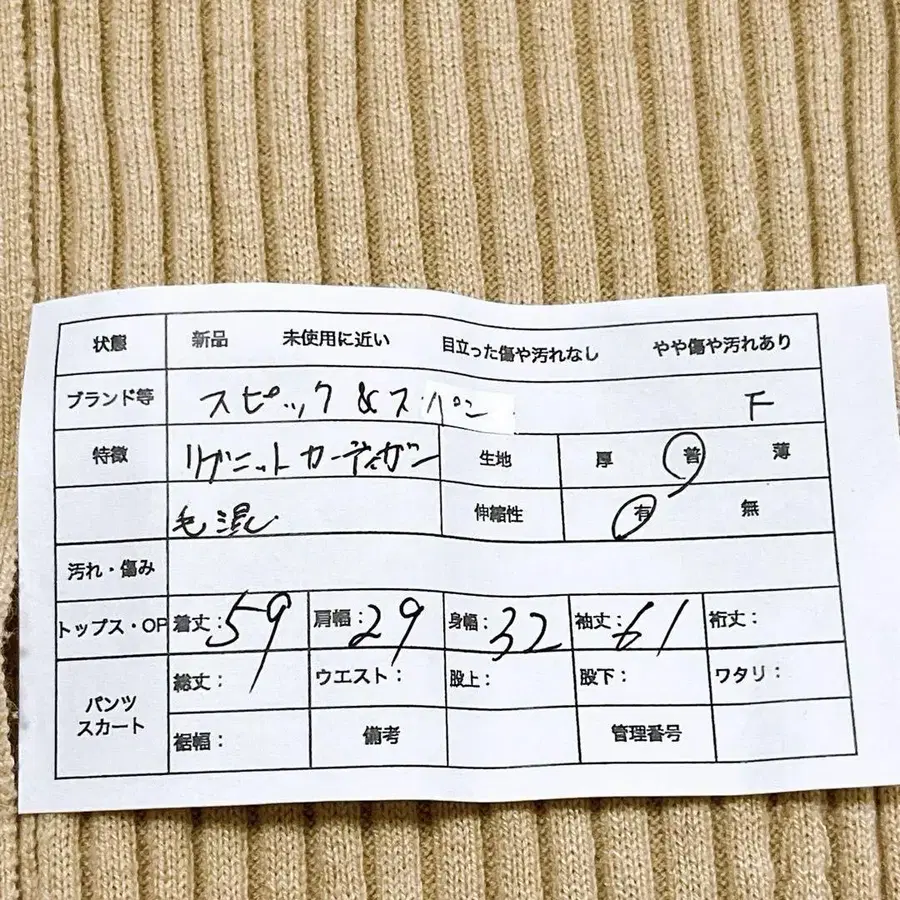 状態 新品 未使用に近い 目立った傷や汚れなし やや傷や汚れあり
ブランド等 スピック&スパン F
特徴 リブニットカーディガン 生地 厚 普 薄
毛混 伸縮性 有 無
汚れ・傷み
トップス・OP 着丈:59 肩幅:29 身幅:32 袖丈:61 裄丈:
パンツ スカート 総丈: ウエスト: 股上: 股下: ワタリ:
裾幅: 備考 管理番号